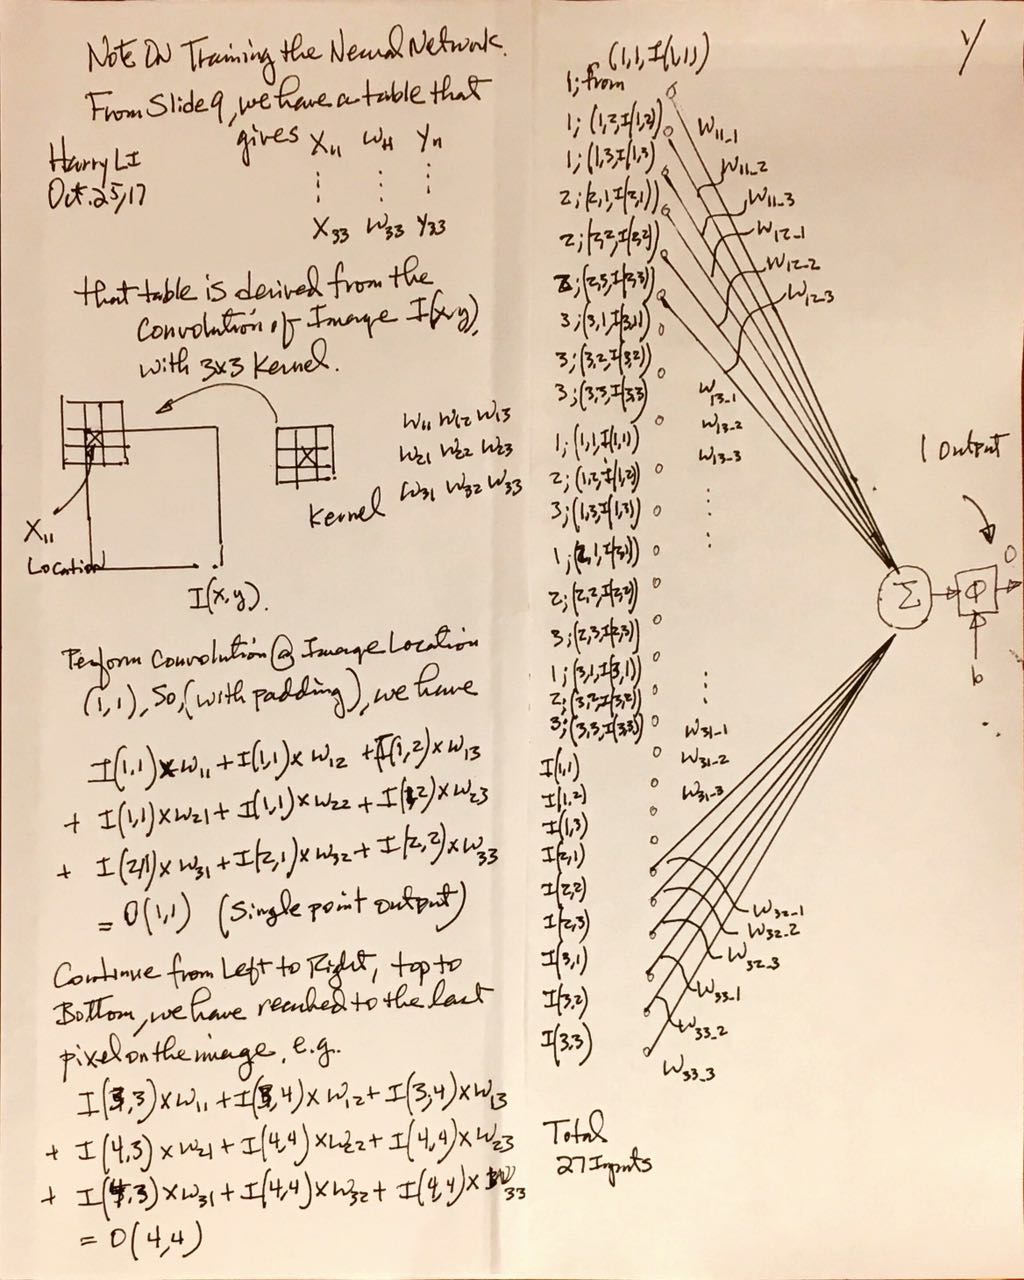 Note on Training the Neural Network.
From Slide 9, we have a table that
gives X11 W11 Y11
Harry LI
Oct. 25, 17
X33 W33 Y33
that table is derived from the
Convolution of Image I(x,y),
with 3x3 Kernel.
W11 W12 W13
W21 W22 W23
W31 W32 W33
Kernel
X11
Location
I(x,y).
Perform Convolution @ Image Location
(1,1), So, (with padding), we have
I(1,1)×W11 + I(1,1)×W12 + I(1,2)×W13
+ I(1,1)×W21 + I(1,1)×W22 + I(1,2)×W23
+ I(2,1)×W31 + I(2,1)×W32 + I(2,2)×W33
= O(1,1) (Single point output)
Continue from Left to Right, top to
Bottom, we have reached to the last
pixel on the image, e.g.
I(3,3)×W11 + I(3,4)×W12 + I(3,4)×W13
+ I(4,3)×W21 + I(4,4)×W22 + I(4,4)×W23
+ I(4,3)×W31 + I(4,4)×W32 + I(4,4)×W33
= O(4,4)
1/
(1,1,I(1,1))
1; from
1; (1,2,I(1,2))
1; (1,3,I(1,3)
2; (2,1,I(2,1))
2; (2,2,I(2,2))
2; (2,3,I(2,3))
3; (3,1,I(3,1)
3; (3,2,I(3,2))
3; (3,3,I(3,3)
1; (1,1,I(1,1))
2; (1,2,I(1,2))
3; (1,3,I(1,3))
1; (2,1,I(2,1))
2; (2,2,I(2,2))
3; (2,3,I(2,3))
1; (3,1,I(3,1))
2; (3,2,I(3,2))
3; (3,3,I(3,3))
I(1,1)
I(1,2)
I(1,3)
I(2,1)
I(2,2)
I(2,3)
I(3,1)
I(3,2)
I(3,3)
W11_1
W11_2
W11_3
W12_1
W12_2
W12_3
W13_1
W13_2
W13_3
W31_1
W31_2
W31_3
W32_1
W32_2
W32_3
W33_1
W33_2
W33_3
1 Output
Σ
Φ
O
b
Total
27 Inputs